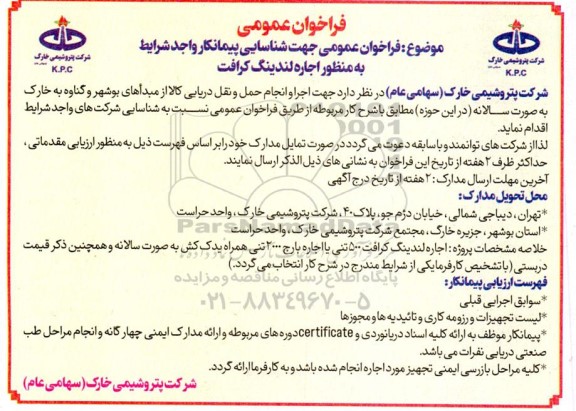 فراخوان عمومی
موضوع : فراخوان عمومی جهت شناسایی پیمانکار واجد شرایط
به منظور اجاره لندینگ کرافت
شرکت پتروشیمی خارک
K.P.C
شرکت پتروشیمی خارک
K.P.C
شرکت پتروشیمی خارک (سهامی عام) در نظر دارد جهت اجرا و انجام حمل و نقل دریایی کالا از مبدأهای بوشهر و گناوه به خارک
به صورت سالانه (در این حوزه) مطابق با شرح کار مربوطه از طریق فراخوان عمومی نسبت به شناسایی شرکت های واجد شرایط
اقدام نماید.
لذا از شرکت های توانمند و با سابقه دعوت می گردد در صورت تمایل مدارک خود را بر اساس فهرست ذیل به منظور ارزیابی مقدماتی ،
حداکثر ظرف ۲ هفته از تاریخ این فراخوان به نشانی های ذیل الذکر ارسال نمایند.
آخرین مهلت ارسال مدارک : ۲ هفته از تاریخ درج آگهی
محل تحویل مدارک :
*تهران ، دیباجی شمالی ، خیابان دژم جو، پلاک ۴۰ ، شرکت پتروشیمی خارک ، واحد حراست
*استان بوشهر ، جزیره خارک ، مجتمع شرکت پتروشیمی خارک ، واحد حراست
خلاصه مشخصات پروژه : اجاره لندینگ کرافت ۵۰۰ تنی یا اجاره بارج ۲۰۰۰ تنی همراه یدک کش به صورت سالانه و همچنین ذکر قیمت
دربستی (با تشخیص کارفرما یکی از شرایط مندرج در شرح کار انتخاب می گردد.)
فهرست ارزیابی پیمانکار:
*سوابق اجرایی قبلی
*لیست تجهیزات و رزومه کاری و تائیدیه ها و مجوزها
*پیمانکار موظف به ارائه کلیه اسناد دریانوردی و certificate دوره های مربوطه و ارائه مدارک ایمنی چهار گانه و انجام مراحل طب
صنعتی دریایی نفرات می باشد.
*کلیه مراحل بازرسی ایمنی تجهیز مورد اجاره انجام شده باشد و به کارفرما ارائه گردد.
شرکت پتروشیمی خارک (سهامی عام)
پایگاه اطلاع رسانی مناقصه و مزایده
۰۲۱-۸۸۳۴۹۶۷۰-۵